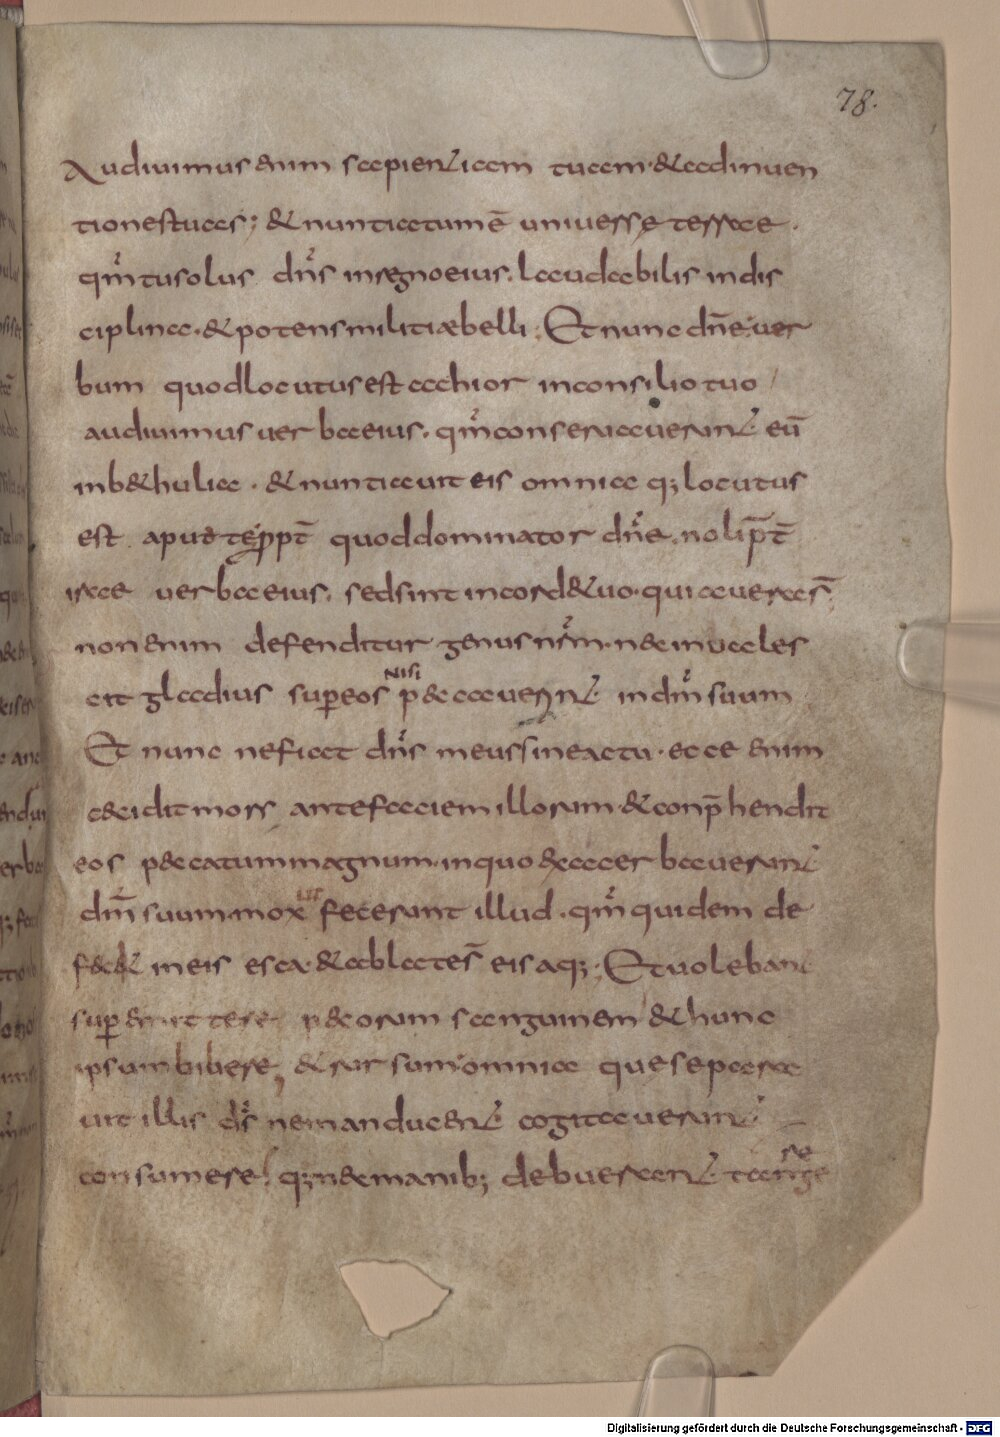 78.
Audiuimus enim sapientiam tuam · & adinuen
tiones tuas ; & nuntiatum ē uniuersę terrae ·
qm̄ tu solus dn̄s in regno eius . laudabilis in dis
ciplina · & potens militiæ belli ; Et nunc dn̄e uer
bum quod locutus est achior in consilio tuo
audiuimus uerba eius . qm̄ conseruauerant eū
in b&hulia . & nuntiauit eis omnia q; locutus
est apud te ppt̄ quod dominator dn̄e . noli p̄t̄
ire uerba eius . sed sint in cord& uo · quia uera s̄t
non enim defenditur genus nr̄m · nec inuales
cit gladius super eos nisi peccauerint in dm̄ suum
Et nunc ne fiat dn̄s meus sine actu · ecce enim
cecidit mors ante faciem illorum & conp̄hendit
eos peccatum magnum · in quo exacerbauerunt
dm̄ suum · mox fecerunt illud . qm̄ quidem de
fec& in eis esca · & ablata es̄ eis aq; ; Et uolebant
pecorum sanguinem & hunc
ipsum bibere , & rursum omnia que separa
uit illis ds̄ ne manducent cogitauerunt
consumere ! q; nec manib; debuerant tangere
Digitalisierung gefördert durch die Deutsche Forschungsgemeinschaft - DFG